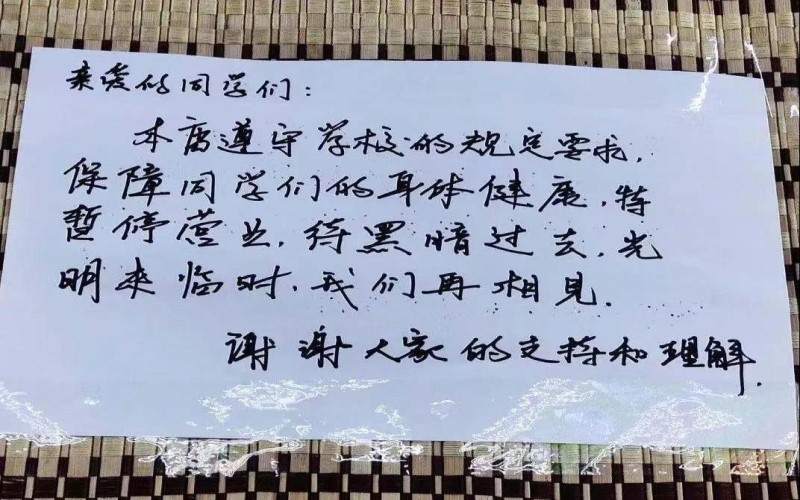 亲爱的同学们:
本店遵守学校的规定要求,
保障同学们的身体健康,特
暂停营业,待黑暗过去,光
明来临时,我们再相见.
谢谢人家的支持和理解.